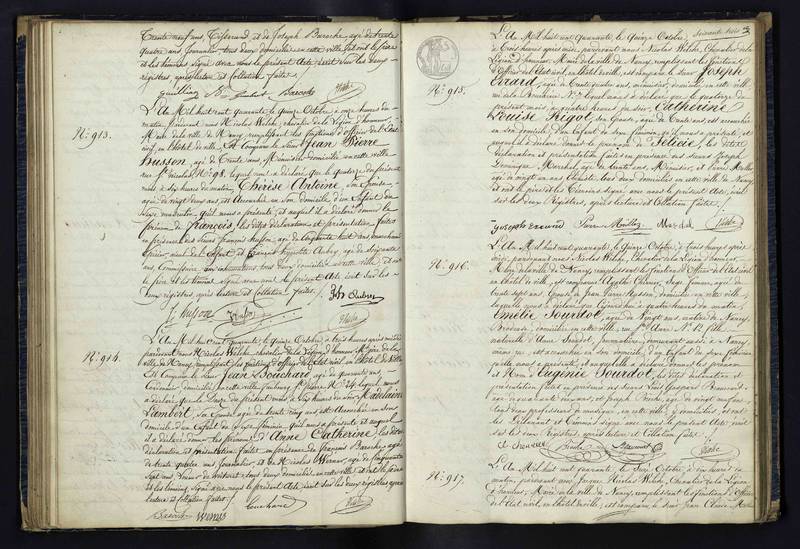 trente neuf ans, Tisserand et de Joseph Baroche, agé de trente
quatre ans Journalier, tous deux domiciliés en cette ville, et ont le père
et les temoins signé avec nous le présent Acte écrit sur les deux
registres, après lecture et Collation faites.
N.° 913.
L'An Mil huit cent quarante, le quinze Octobre, à onze heures du
matin, pardevant nous Nicolas Welche, chevalier de la Légion d'honneur,
Maire de la ville de Nancy, remplissant les fonctions d'officier de l'Etat
civil, en l'hôtel de ville, Est Comparu le Sieur Jean Pierre
husson, agé de Trente ans, Menuisier domicilié en cette ville
rue S.t Nicolas N.° 98, lequel nous a déclaré, que le quatorze du présent
mois à six heures du matin, Thérèse Antoine, son Epouse
agée de vingt deux ans, est Accouchée en son domicile d'un Enfant du
Sexe masculin, qu'il nous a présenté, et auquel il a déclaré donner le
prénom de françois, les dites déclarations et présentation faites
en présence des Sieurs François husson, agé de Cinquante huit ans, marchand
Epicier, aïeul de l'Enfant et François hyppolite Aubry, agé de soixante
ans, Commissaire, tous deux domiciliés en cette ville, et ont
le père et les temoins signé avec nous le présent Acte écrit sur les
deux registres, après lecture et Collation faites.
J. husson
N.° 914.
L'An Mil huit cent quarante, le quinze Octobre, à trois heures après midi
pardevant nous Nicolas Welche, chevalier de la Légion d'honneur, Maire de la
ville de Nancy, remplissant les fonctions d'officier de l'Etat civil, en l'hôtel de ville
Est Comparu le Sieur Jean Bouchard agé de quarante ans,
Cordonnier domicilié en cette ville, faubourg S.t Pierre N.° 24, lequel nous
a déclaré, que le Douze du présent mois à Dix heures du soir Madelaine
Lambert, son Epouse agée de trente cinq ans est Accouchée en son
domicile d'un Enfant du Sexe féminin, qu'il nous a présenté et auquel
il a déclaré donner les prénoms d'Anne Catherine, les dites
déclaration et présentation faites en présence de François Baroche, agé
de trente quatre ans Journalier, et de Nicolas Werner, agé de Cinquante
sept ans, tous deux domiciliés en cette ville, et ont le père
et les temoins, signé avec nous le présent Acte écrit sur les deux registres, après
lecture et Collation faites.
Soixante trois
N.° 915.
L'An Mil huit cent Quarante, le Quinze Octobre,
à Trois heures après midi, pardevant nous Nicolas Welche, Chevalier de la
Légion d'honneur, Maire de la ville de Nancy, remplissant les fonctions
d'Officier de l'Etat civil, en l'hôtel de ville, est comparu le Sieur Joseph
Evrard, agé de Trente quatre ans, menuisier, domicilié en cette ville,
rue de la Primatiale N.° lequel nous a déclaré que le quatorze du
présent mois, à quatre heures du soir, Catherine
Louise Rigot, son Epouse, agée de Trente ans, est accouchée
en son domicile, d'un Enfant du Sexe féminin, qu'il nous a présenté, et
auquel il a déclaré donner le prénom de Félicie, les dites
déclaration et présentation faites en présence des Sieurs Joseph
Dominique Marchal, agé de trente ans, Menuisier, et Pierre Morillon
agé de vingt six ans Ebéniste, tous deux domiciliés en cette ville de Nancy,
et ont le père et les Témoins signé, avec nous le présent Acte, écrit
sur les deux Registres, après lecture et Collation faites.
Pierre Morillon
N.° 916.
L'An Mil huit cent quarante, le Quinze Octobre, à Trois heures après
midi, pardevant nous Nicolas Welche, Chevalier de la Légion d'honneur,
Maire de la ville de Nancy, remplissant les fonctions d'Officier de l'Etat civil
en l'hôtel de ville, est comparue Agathe Thirion, Sage femme, agée de
trente sept ans, Epouse de Jean Pierre domiciliée en cette ville,
laquelle nous a déclaré, que à quatre heures du matin
Emélie Sourdot, agée de Vingt ans, native de Nancy,
Brodeuse, domiciliée en cette ville, rue S.te Anne N.° 12, fille
naturelle d'Anne Sourdot, Journalière, demeurant aussi à Nancy,
même rue, est accouchée en son domicile, d'un enfant du sexe féminin
qu'elle nous a présenté, et auquel elle a déclaré donner les prénoms
et Nom d'Eugénie Sourdot, les dites déclaration et
présentation faites en présence des Sieurs Louis Gaspard Beaumont,
agé de quarante six ans, et Joseph Broche, agé de vingt neuf ans,
tous deux professeurs de musique, en cette ville y domiciliés, et ont
les Déclarant et Témoins signé avec nous le présent Acte écrit
sur les deux Registres, après lecture et Collation faites.
N.° 917.
L'An Mil huit cent quarante, le Seize Octobre, à dix heures du
matin, pardevant nous Nicolas Welche, Chevalier de la Légion
d'honneur, Maire de la ville de Nancy, remplissant les fonctions d'Officier
de l'Etat civil, en l'hôtel de ville, est comparu, le Sieur Jean